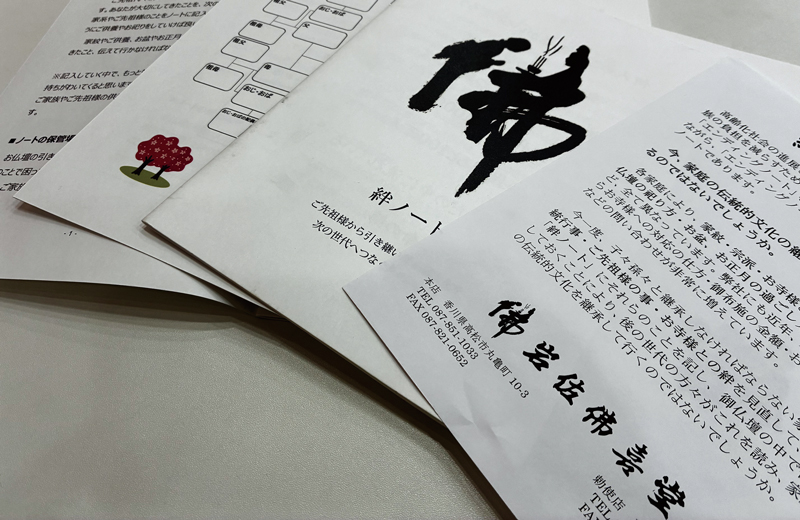 す。あなたが大切にしてきたことを、次の
家系やご先祖様のことをノートに記入
うにご供養やお祀りをしていけば良
家族やご供養、お盆やお正月
きたこと、伝えて行かなければな
※記入していく中で、もっと
持ちがわいてくると思いま
ご家族やご先祖様の供
す。
■ノートの保管場
お仏壇の引き
ことで困っ
ご家族
おじ・おば
おじ・おば
佛
絆ノート
ご先祖様から引き継い
次の世代へつな
高齢化社会の進展
族の負担を軽くする
ながら、「エンディング
「エンディングノート」
ノートであります。
今、家庭の伝統的文化の継
るのではないでしょうか。
各家庭により、家紋・宗派・お寺様
仏壇の祀り方・お盆、お正月の過ごし
ど、全て異なっています。弊社にも近年、
らお寺様への対応の仕方、御布施の金額・お
などの問い合わせが非常に増えています。
今一度、子々孫々と継承しなければならない家
続行事・ご先祖様の事・お寺様との絆を見直して、
「絆ノート」にそれらのことを記し、御仏壇の中で
しておくことにより、後の世代の方々がこれを読み、家
の伝統的文化を継承して行くのではないでしょうか。
佛 岩佐佛喜堂
本店 香川県高松市丸亀町 10-3
TEL 087-851-1033
FAX 087-821-0652
勅使店
TEL
FAX